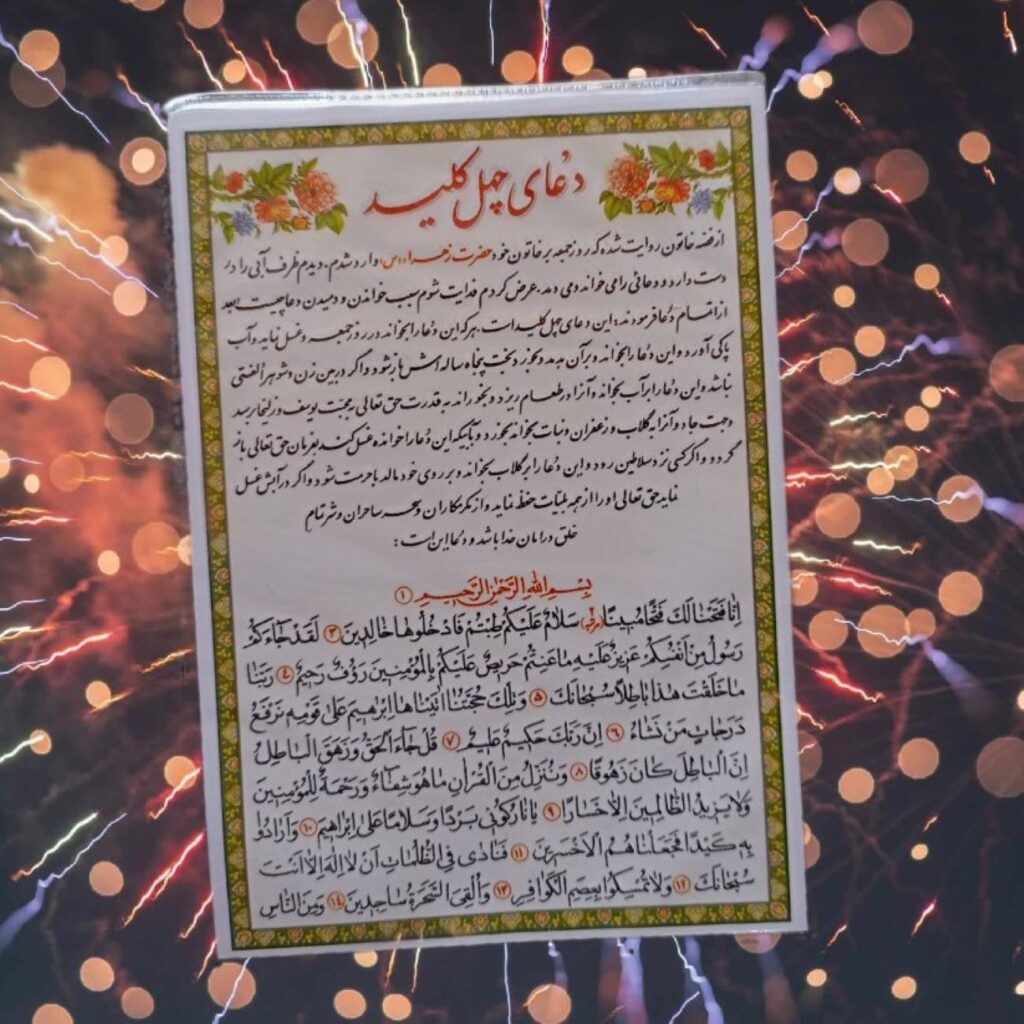 دُعای چهل کلید
از فضه خاتون روایت شده که روز جمعه بر خاتون خود حضرت زهرا (س) وارد شدم، دیدم ظرف آبی را در
دست دارد و دعائی را می خواند و می دمد، عرض کردم فدایت شوم سبب خواندن و دمیدن دعا چیست بعد
از اتمام دُعا فرمودند: این دعای چهل کلید است، هر که این دُعا را بخواند در روز جمعه و غسل نماید و آب
پاکی آورد و این دُعا را بخواند و بر آن بدمد و بخورد و بخت پنجاه ساله اش باز شود و اگر در بین زن و شوهر الفتی
نباشد و این دُعا را بر آب بخواند و آنرا در طعام ریزد و بخوراند به قدرت حق تعالی به محبت یوسف و زلیخا برسد
و جهت جاه و آنرا به گلاب و زعفران و نبات بخواند بخورد و بآبیکه این دُعا را خوانده غسل کند بفرمان حق تعالی باز
گردد و اگر کسی نزد سلاطین رود و این دُعا را بر گلاب بخواند و بر روی خود مالد با حرمت شود و اگر در آبش غسل
نماید حق تعالی او را از همه بلیّات حفظ نماید و از مکر مکاران و سحر ساحران و شر تمام
خلق در امان خدا باشد و دُعا این است:
بِسْمِ اللهِ الرَّحْمٰنِ الرَّحیمِ ①
اِنّا فَتَحْنا لَكَ فَتْحًا مُبینًا سَلامٌ عَلَیْكُمْ طِبْتُمْ فَادْخُلُوها خالِدینَ ③ لَقَدْ جاءَكُمْ
رَسُولٌ مِنْ اَنْفُسِكُمْ عَزیزٌ عَلَیْهِ ما عَنِتُّمْ حَریصٌ عَلَیْكُمْ بِالْمُؤْمِنینَ رَؤُفٌ رَحیمٌ ④ رَبَّنا
ما خَلَقْتَ هذا باطِلًا سُبْحانَكَ ⑤ وَتِلْكَ حُجَّتُنا اٰتَیْناها اِبْراهیمَ عَلی قَوْمِهِ نَرْفَعُ
دَرَجاتٍ مَنْ نَشاءُ ⑥ اِنَّ رَبَّكَ حَكیمٌ عَلیمٌ ⑦ قُلْ جاءَ الْحَقُّ وَزَهَقَ الْباطِلُ
اِنَّ الْباطِلَ كانَ زَهُوقًا ⑧ وَنُنَزِّلُ مِنَ الْقُرْاٰنِ ما هُوَ شِفاءٌ وَرَحْمَةٌ لِلْمُؤْمِنینَ
وَلا یَزیدُ الظّالِمینَ اِلّا خَسارًا ⑨ یا نارُ كُونی بَرْدًا وَسَلامًا عَلی اِبْراهیمَ ⑩ وَاَرادُوا
بِهِ كَیْدًا فَجَعَلْناهُمُ الْاَخْسَرینَ ⑪ فَنادی فِی الظُّلُماتِ اَنْ لا اِلهَ اِلّا اَنْتَ
سُبْحانَكَ ⑫ وَلا تُمْسِكُوا بِعِصَمِ الْكَوافِرِ ⑬ وَاُلْقِیَ السَّحَرَةُ ساجِدینَ ⑭ وَمِنَ النّاسِ